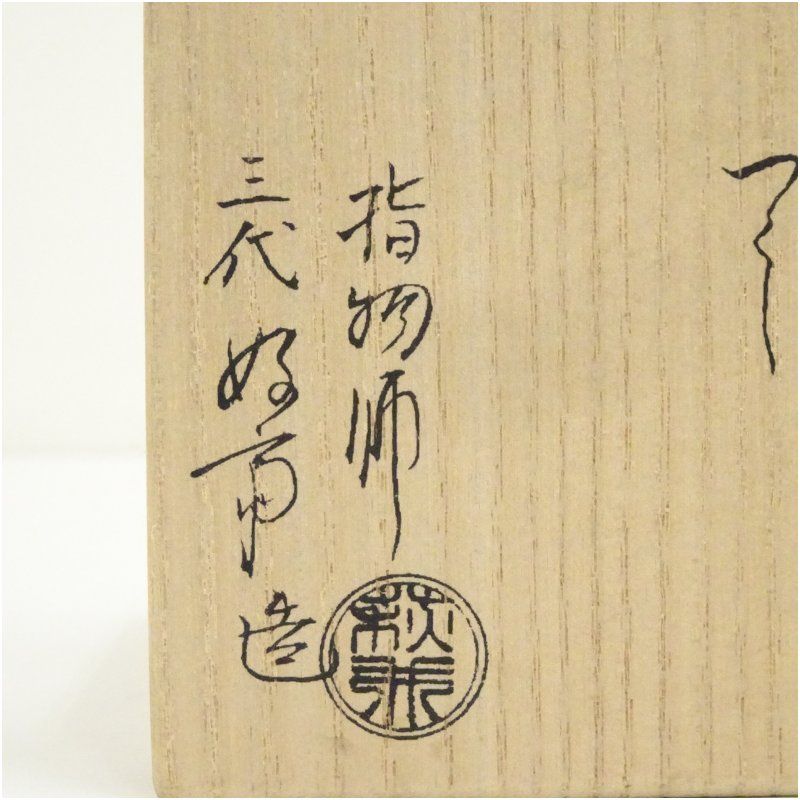 指物師
三代 好斎 造